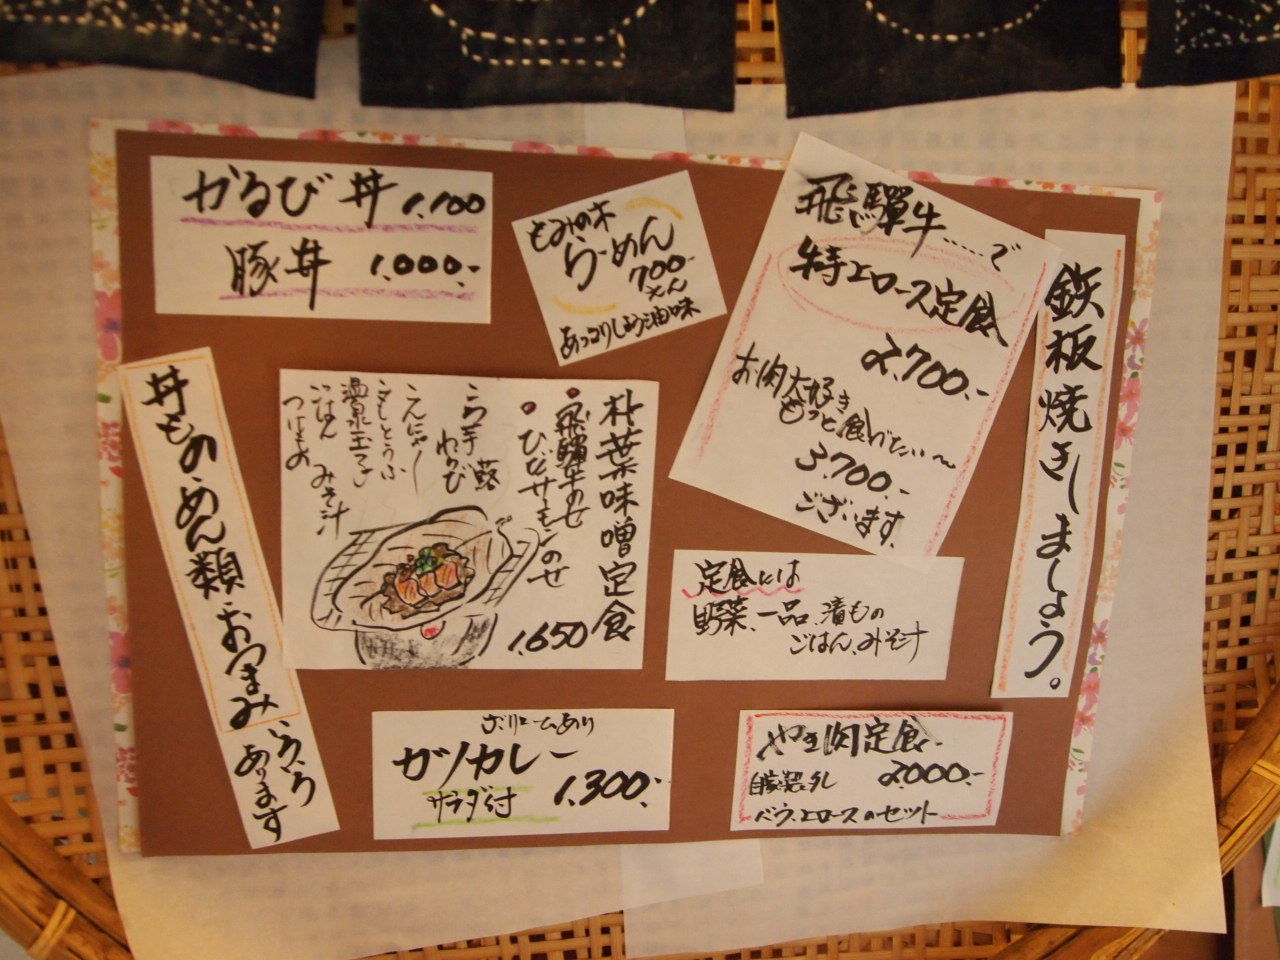 かるび丼 1,100
豚丼 1,000.-
もみの木
らーめん
700-
えん
あっさりしょう油味
飛騨牛……で
特上ロース定食
2,700.-
お肉大好き
もっと食べたい〜
3,700.-
ございます。
鉄板焼きしましょう。
丼もの、めん類 おつまみ いろいろ
あります
朴葉味噌定食
飛騨牛のせ
ひびサーモンのせ
1,650
わらび
こんにゃく
温泉玉子
ごはん みそ汁
つけもの
定食には
野菜、一品、漬もの
ごはん、みそ汁
ボリュームあり
ガツカレー
サラダ付 1,300.-
やき肉定食
2,000.-
バラ、上ロースのセット